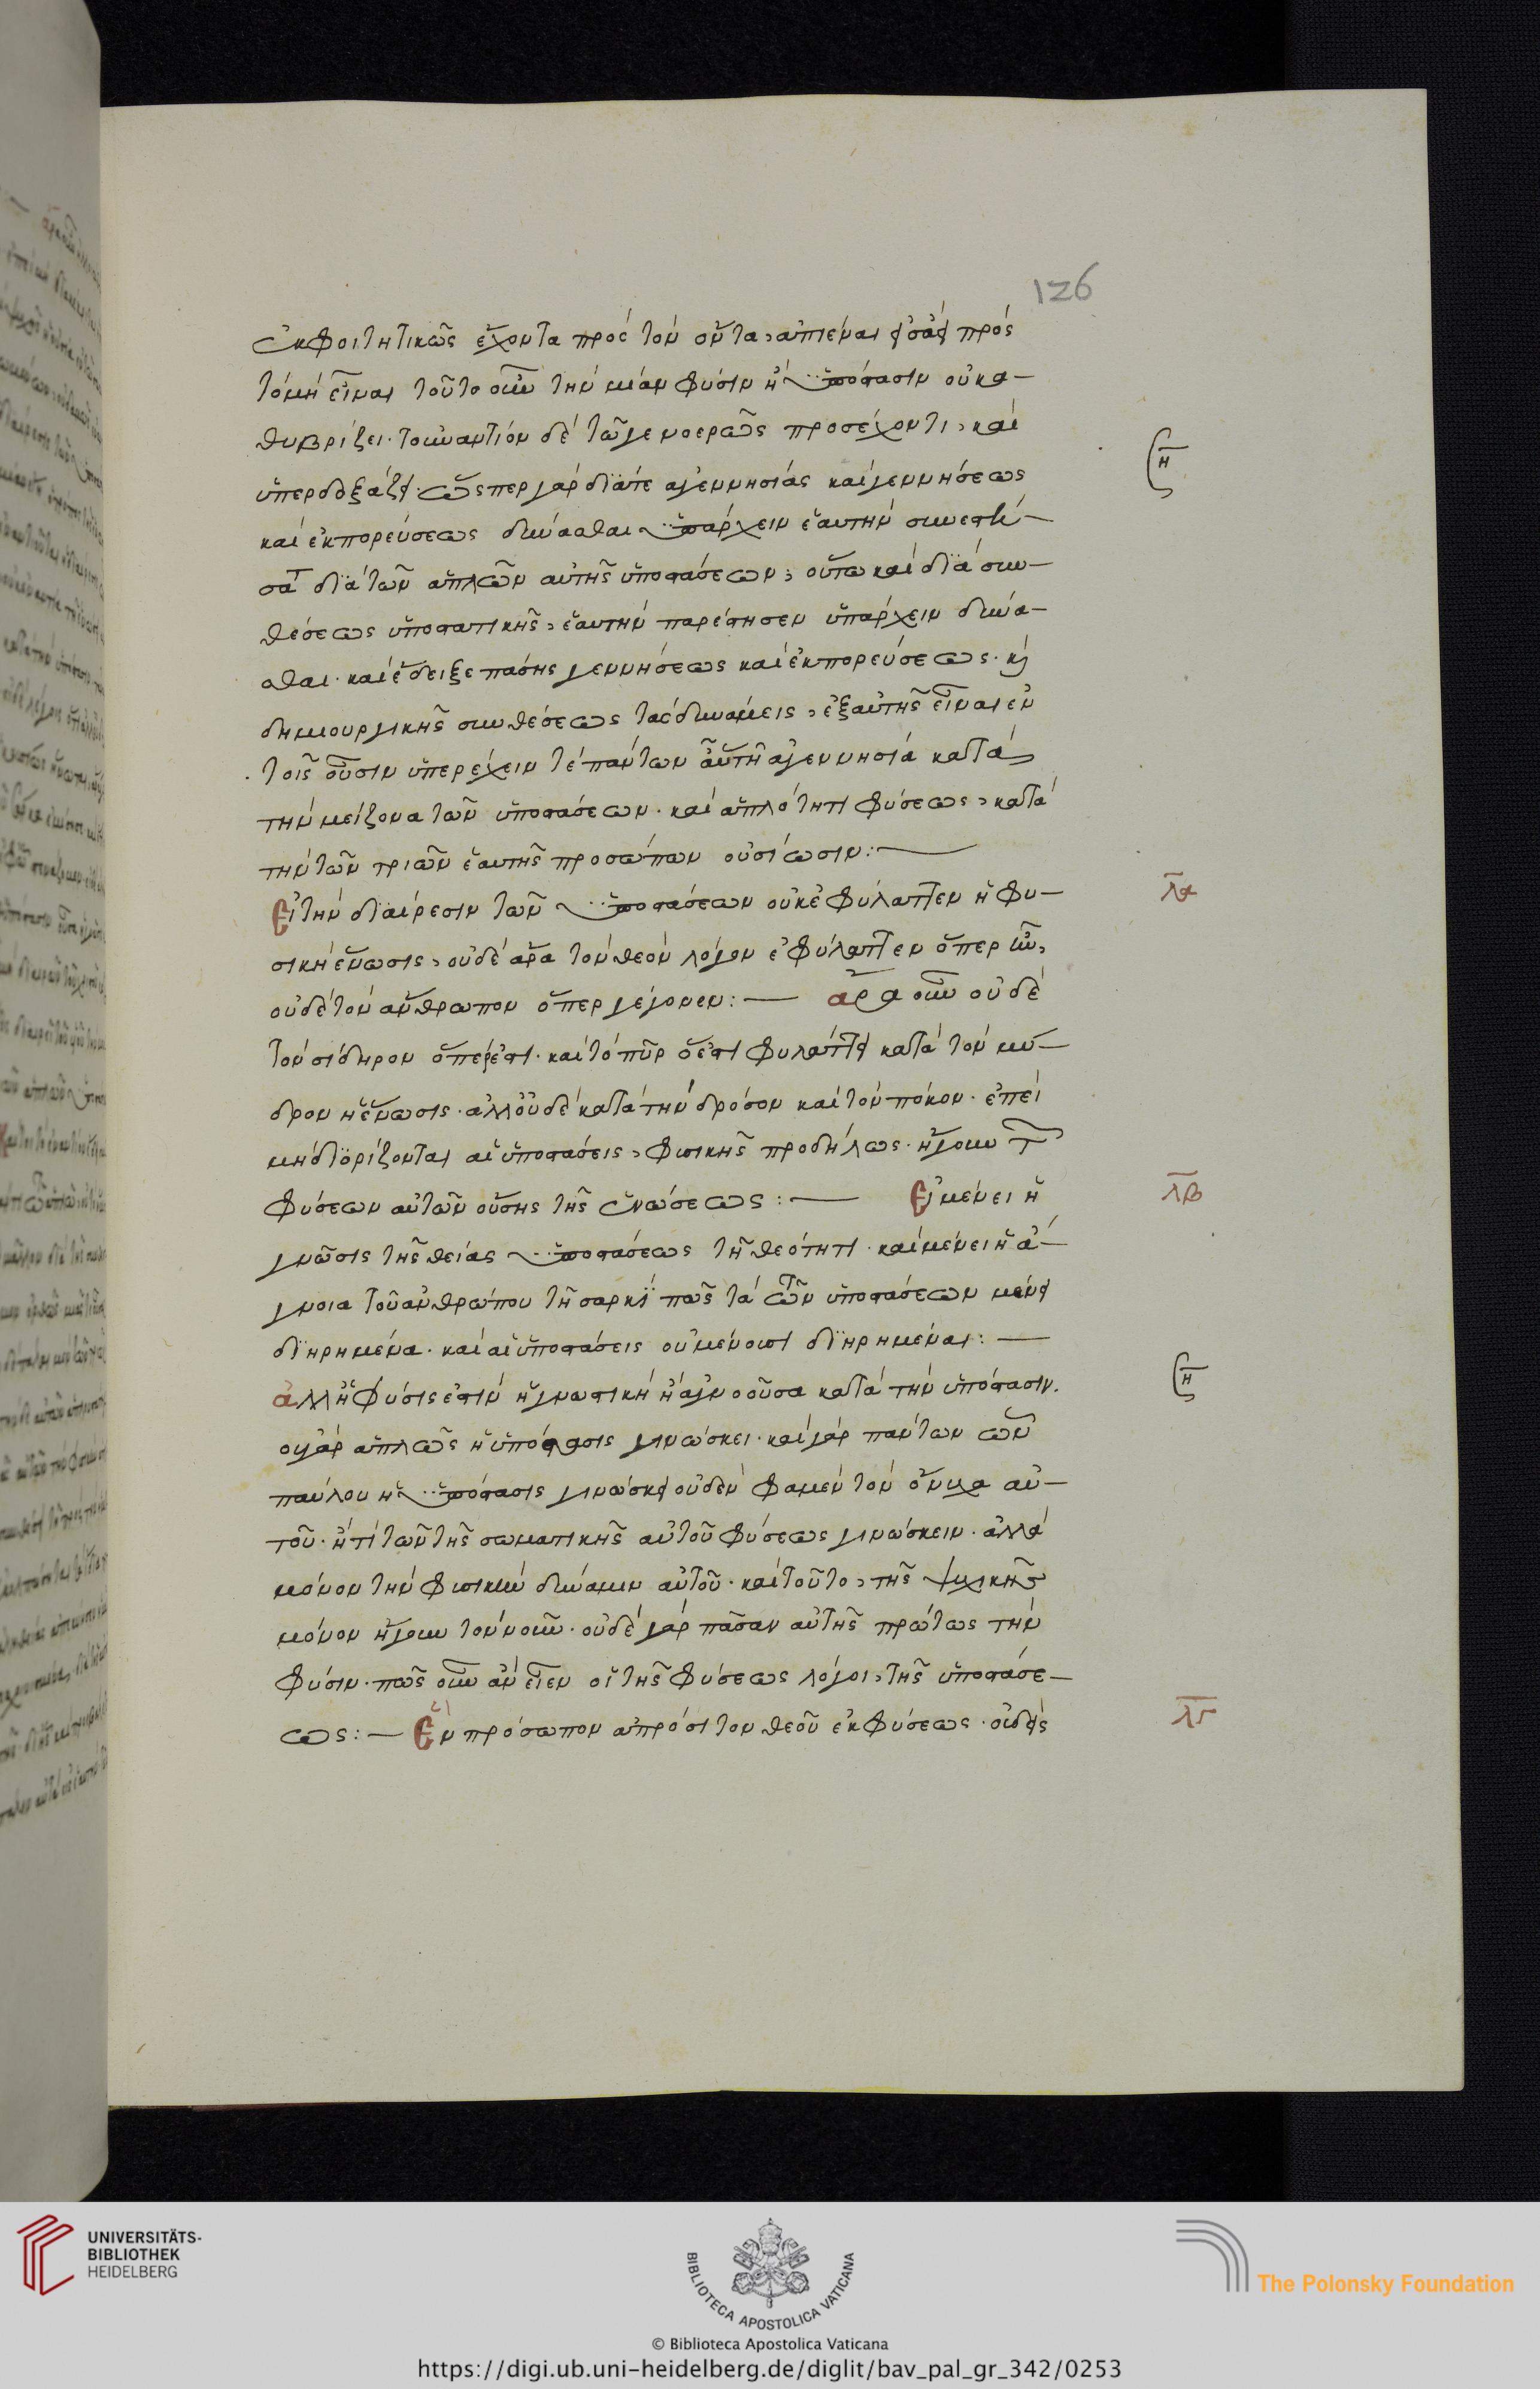 126
ἐκφοιτητικῶς ἔχοντα πρὸς τὸν ὄντα, ἀπιέναι πρὸς
τὸ μὴ εἶναι τοῦτο οὖν τὴν μίαν φύσιν ἢ ὑπόστασιν οὐ κα-
θυβρίζει· τοὐναντίον δὲ τῶ γε νοερῶς προσέχοντι, καὶ
ὑπερδοξάζει· ὥσπερ γὰρ διά τε ἀγεννησίας καὶ γεννήσεως
καὶ ἐκπορεύσεως δύνασθαι ὑπάρχειν ἑαυτὴν συνεστή-
σατο διὰ τῶν ἁπλῶν αὐτῆς ὑποστάσεων, οὕτω καὶ διὰ συν-
θέσεως ὑποστατικῆς, ἑαυτὴν παρέστησεν ὑπάρχειν δύνα-
σθαι· καὶ ἔδειξε πάσης γεννήσεως καὶ ἐκπορεύσεως· κ
δημιουργικῆς συνθέσεως τὰς δυνάμεις, ἐξ αὐτῆς εἶναι ἐν
τοῖς οὖσιν ὑπερέχειν τὲ πάντων αὐτῆ ἀγεννησία κατὰ
τὴν μείζονα τῶν ὑποστάσεων· καὶ ἁπλότητι φύσεως, κατὰ
τὴν τῶν τριῶν ἑαυτῆς προσώπων οὐσίωσιν:—
Εἰ τὴν διαίρεσιν τῶν ὑποστάσεων οὐκ ἐφύλαττεν ἡ φυ-
σικὴ ἕνωσις, οὐδὲ ἄρα τὸν θεὸν λόγον ἐφύλαττεν ὅπερ ἦν,
οὐδὲ τὸν ἄνθρωπον ὅπερ γέγονεν:— ἆρα οὖν οὐδὲ
τὸν σίδηρον ὅπερ ἐστι· καὶ τὸ πῦρ ὅ ἐστι φυλάττει κατὰ τὸν μύ-
δρον ἡ ἕνωσις· ἀλλ' οὐδὲ κατὰ τὴν δρόσον καὶ τὸν πόκον· ἐπεὶ
μὴ διορίζονται αἱ ὑποστάσεις, φυσικῆς προδήλως· ἤγουν τ
φύσεων αὐτῶν οὔσης τῆς ἑνώσεως:— Εἰ μένει ἡ
γνῶσις τῆς θείας ὑποστάσεως τῆ θεότητι· καὶ μένει ἡ ἄ-
γνοια τοῦ ἀνθρώπου τῆ σαρκὶ πῶς τὰ τῶν ὑποστάσεων μένει
διηρημένα· καὶ αἱ ὑποστάσεις οὐ μένουσι διηρημέναι:—
ἀλλ' ἡ φύσις ἐστὶν ἡ γνωστικὴ ἢ ἀγνοοῦσα κατὰ τὴν ὑπόστασιν.
οὐ γὰρ ἁπλῶς ἡ ὑπόστασις γινώσκει· καὶ γὰρ πάντων ὧν
παύλου ἡ ὑπόστασις γινώσκει οὐδὲν φαμὲν τὸν ὄνυχα αὐ-
τοῦ· ἤ τι τῶν τῆς σωματικῆς αὐτοῦ φύσεως γινώσκειν· ἀλλὰ
μόνον τὴν φυσικὴν δύναμιν αὐτοῦ· καὶ τοῦτο, τῆς ψυχικῆς
μόνον ἤγουν τὸν νοῦν· οὐδὲ γὰρ πᾶσαν αὐτῆς πρώτως τὴν
φύσιν· πῶς οὖν ἂν εἶεν οἱ τῆς φύσεως λόγοι, τῆς ὑποστάσε-
ως:— Ἓν πρόσωπον ἀπρόσιτον θεοῦ ἐκ φύσεως· οὐδεὶς
λα
λβ
λγ
UNIVERSITÄTS-
BIBLIOTHEK
HEIDELBERG
BIBLIOTECA APOSTOLICA VATICANA
The Polonsky Foundation
© Biblioteca Apostolica Vaticana
https://digi.ub.uni-heidelberg.de/diglit/bav_pal_gr_342/0253